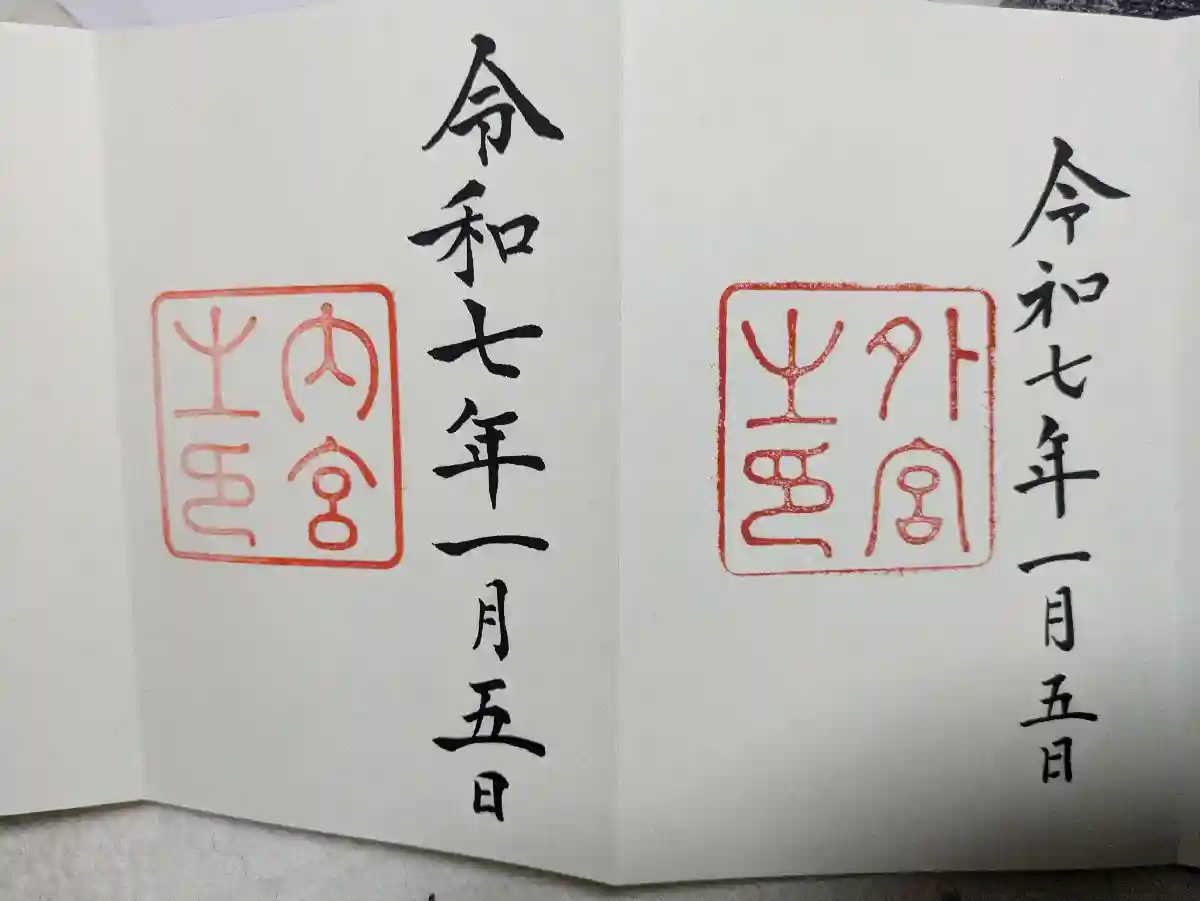 令和七年一月五日
外宮
之印
令和七年一月五日
内宮
之印